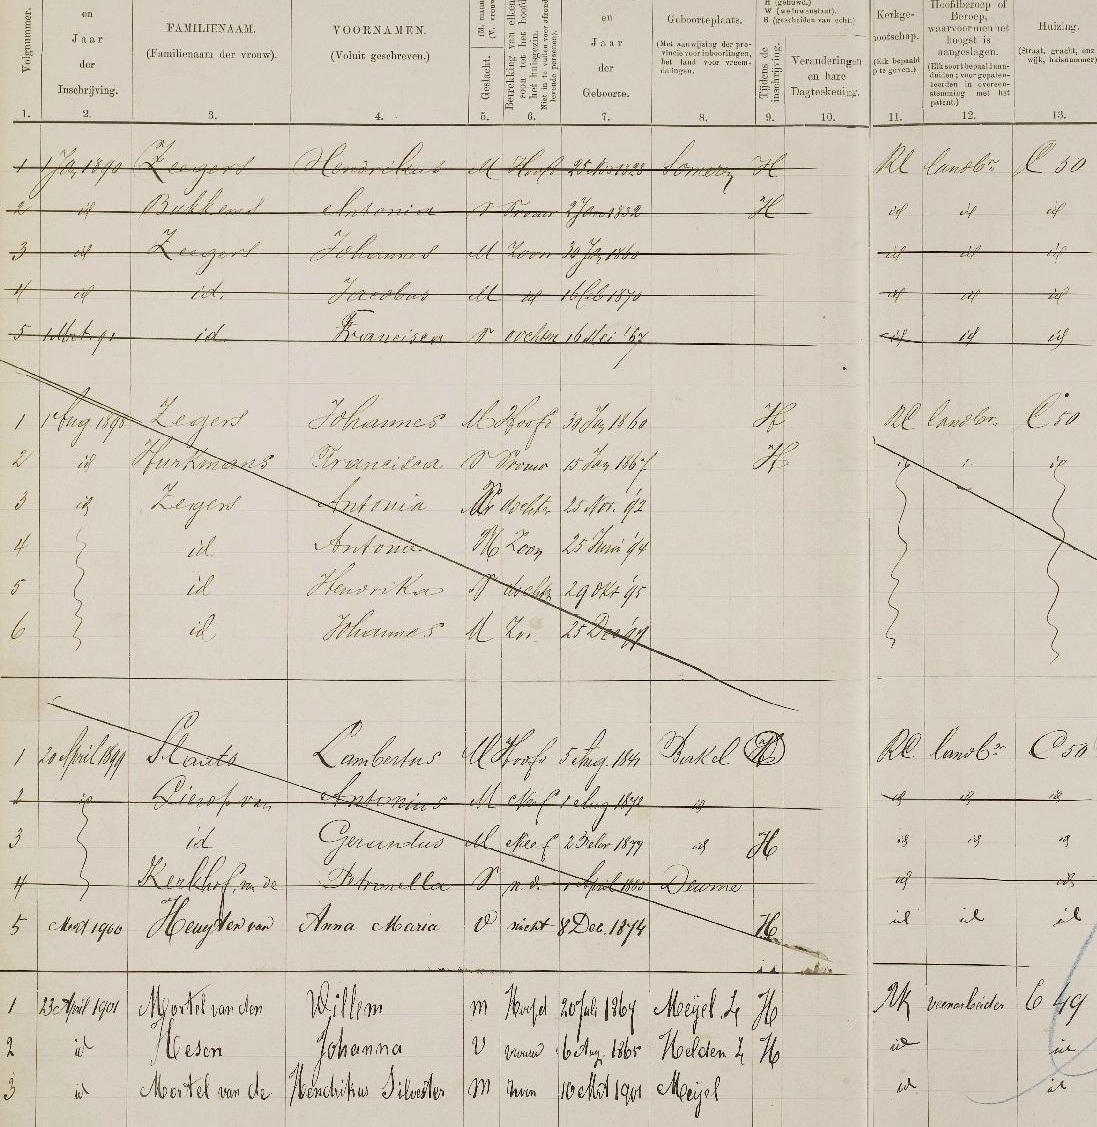 Volgnummer.
en
Jaar
der
Inschrijving.
FAMILIENAAM.
(Familienaam der vrouw).
VOORNAMEN.
(Voluit geschreven).
Geslacht.
en
Jaar
der
Geboorte.
Geboorteplaats.
(Met aanwijzing der provincie voor inboorlingen, het land voor vreemdelingen.
H (gehuwd.)
W (weduwenstaat).
S (gescheiden van echt.)
Tijdens de inschrijving.
Veranderingen
en hare
Dagteekening.
Kerkge-
nootschap.
(Elk bepaald
op te geven.)
Hoofdberoep of
Beroep,
waarvoor men het
hoogst is
aangeslagen.
Huizing.
(Straat, gracht, enz.
wijk, huisnummer)
1. 2. 3. 4. 5. 6. 7. 8. 9. 10. 11. 12. 13.
1 1 Jan 1890 Zeegers Hendrikus M Hoofd Someren H RC landbr C 50
2 id Bukkems Antonia V Vrouw 2 Jan 1832 H id id id
3 id Zeegers Johannes M Zoon 30 Jan 1860 id id id
4 id id. Jacobus M id 16 Feb 1870 id id id
5 id. Francisca V dochter 16 Mei '67 id id id
1 1 Aug 1898 Zegers Johannes M Hoofd 30 Jan 1860 H RC landbr. C 50
2 id Hurkmans Francisca V Vrouw 15 Jan 1867 H id id
3 id Zegers Antonia dochter 25 Nov. '92
4 id M Zoon 25 Juni '94
5 id Hendrika V dochter 29 Okt '95
6 id Johannes M Zn. 25 Dec '97
1 20 April 1899 Slaats Lambertus M Hoofd 5 Aug. 1841 Bakel RC landbr C 50
2 id van Antonius M Neef 1 Aug 1878 id id id id
3 id Gerardus M Neef 2 Febr 1877 id H id id id
4 Kerkhof, van de Petronella V n.v. 1 April 1880 Deurne id id
5 Mrt 1900 Heugten van Anna Maria V nicht 8 Dec. 1874 H id id id
1 23 April 1901 Mortel van den Willem m Hoofd 20 Juli 1867 Meijel L H RK veenarbeider C 49
2 id Hesen Johanna V vrouw 6 Aug. 1865 Helden L H id id
3 id Mortel van de Hendrikus Silvester m zoon 10 Mrt 1901 Meijel id id